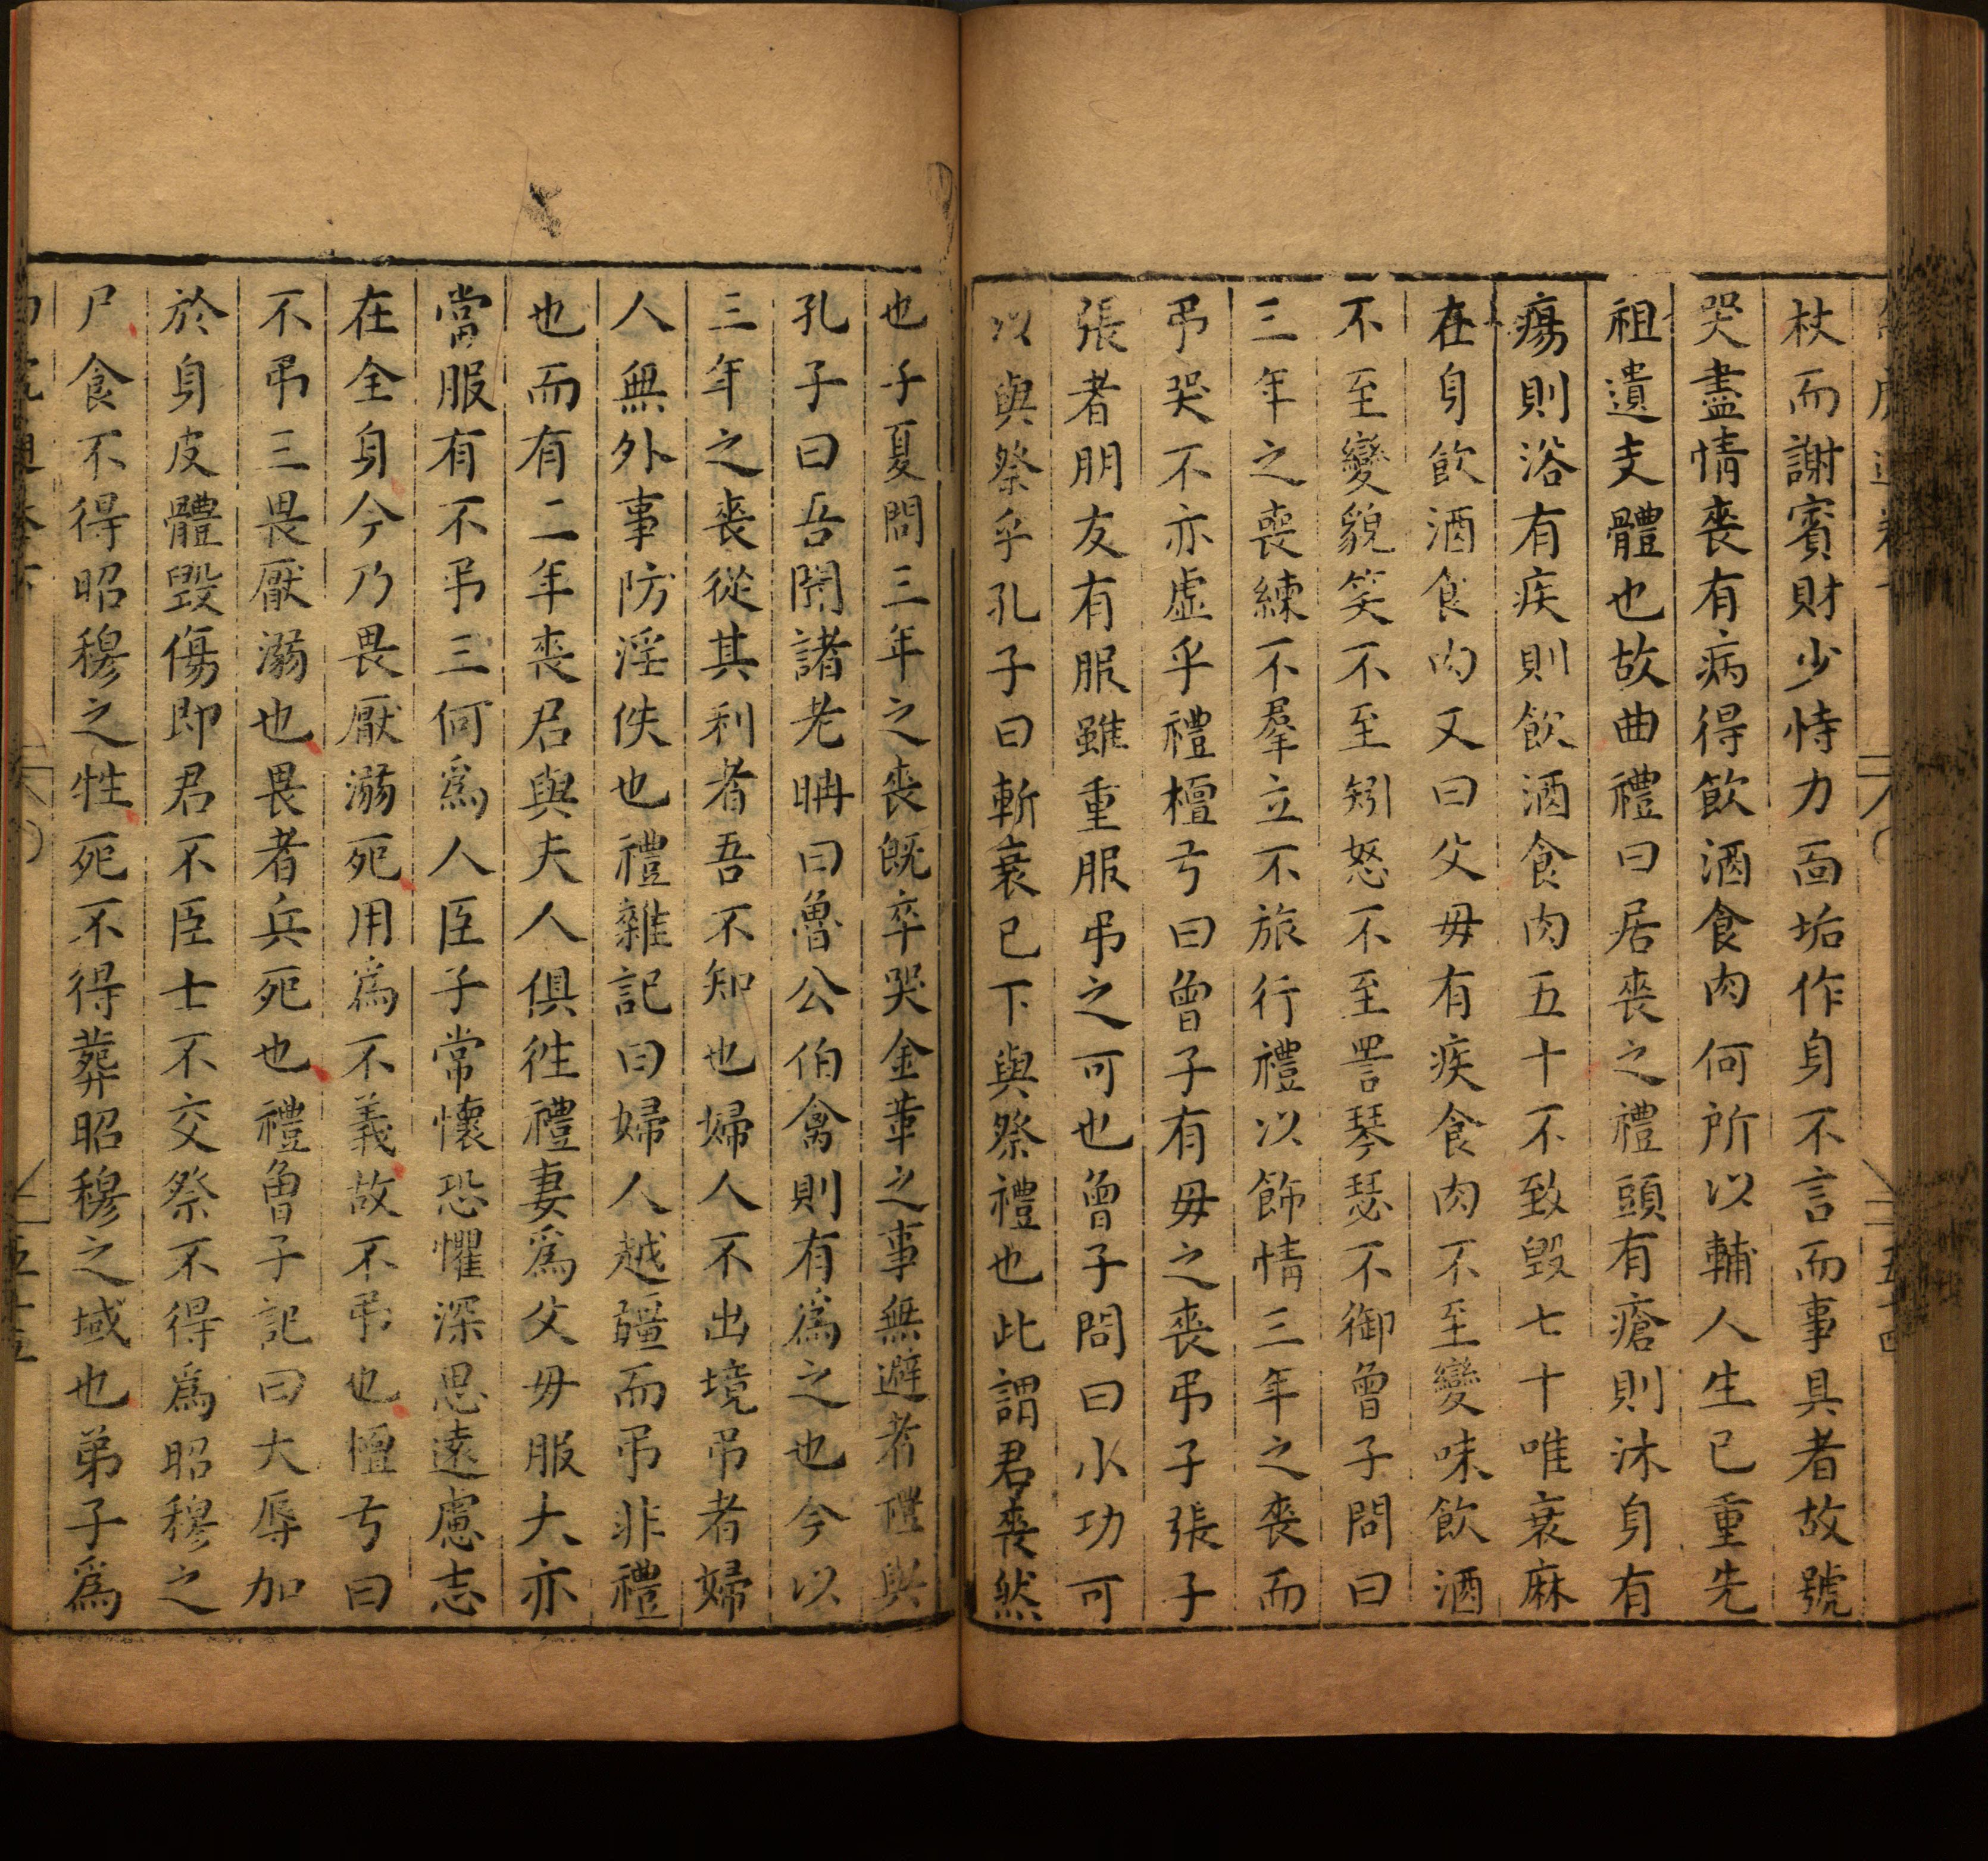 杖而謝賓財少恃力面垢作身不言而事具者故號
哭盡情喪有病得飲酒食肉何所以輔人生已重先
祖遺支體也故曲禮曰居喪之禮頭有瘡則沐身有
瘍則浴有疾則飲酒食肉五十不致毀七十唯衰麻
在身飲酒食肉又曰父毋有疾食肉不至變味飲酒
不至變貌笑不至矧怒不至詈琴瑟不御曾子問曰
三年之喪練不羣立不旅行禮以飾情三年之喪而
弔哭不亦虛乎禮檀弓曰曾子有毋之喪弔子張子
張者朋友有服雖重服弔之可也曾子問曰小功可
以與祭乎孔子曰斬衰已下與祭禮也此謂君喪然
也子夏問三年之喪旣卒哭金革之事無避者禮與
孔子曰吾聞諸老聃曰魯公伯禽則有爲之也今以
三年之喪從其利者吾不知也婦人不出境吊者婦
人無外事防淫佚也禮雜記曰婦人越疆而弔非禮
也而有二年喪君與夫人俱徃禮妻爲父毋服大亦
當服有不弔三何爲人臣子常懷恐懼深思遠慮志
在全身今乃畏厭溺死用爲不義故不弔也檀弓曰
不弔三畏厭溺也畏者兵死也禮曾子記曰大辱加
於身皮體毀傷即君不臣士不交祭不得爲昭穆之
尸食不得昭穆之牲死不得葬昭穆之域也弟子爲